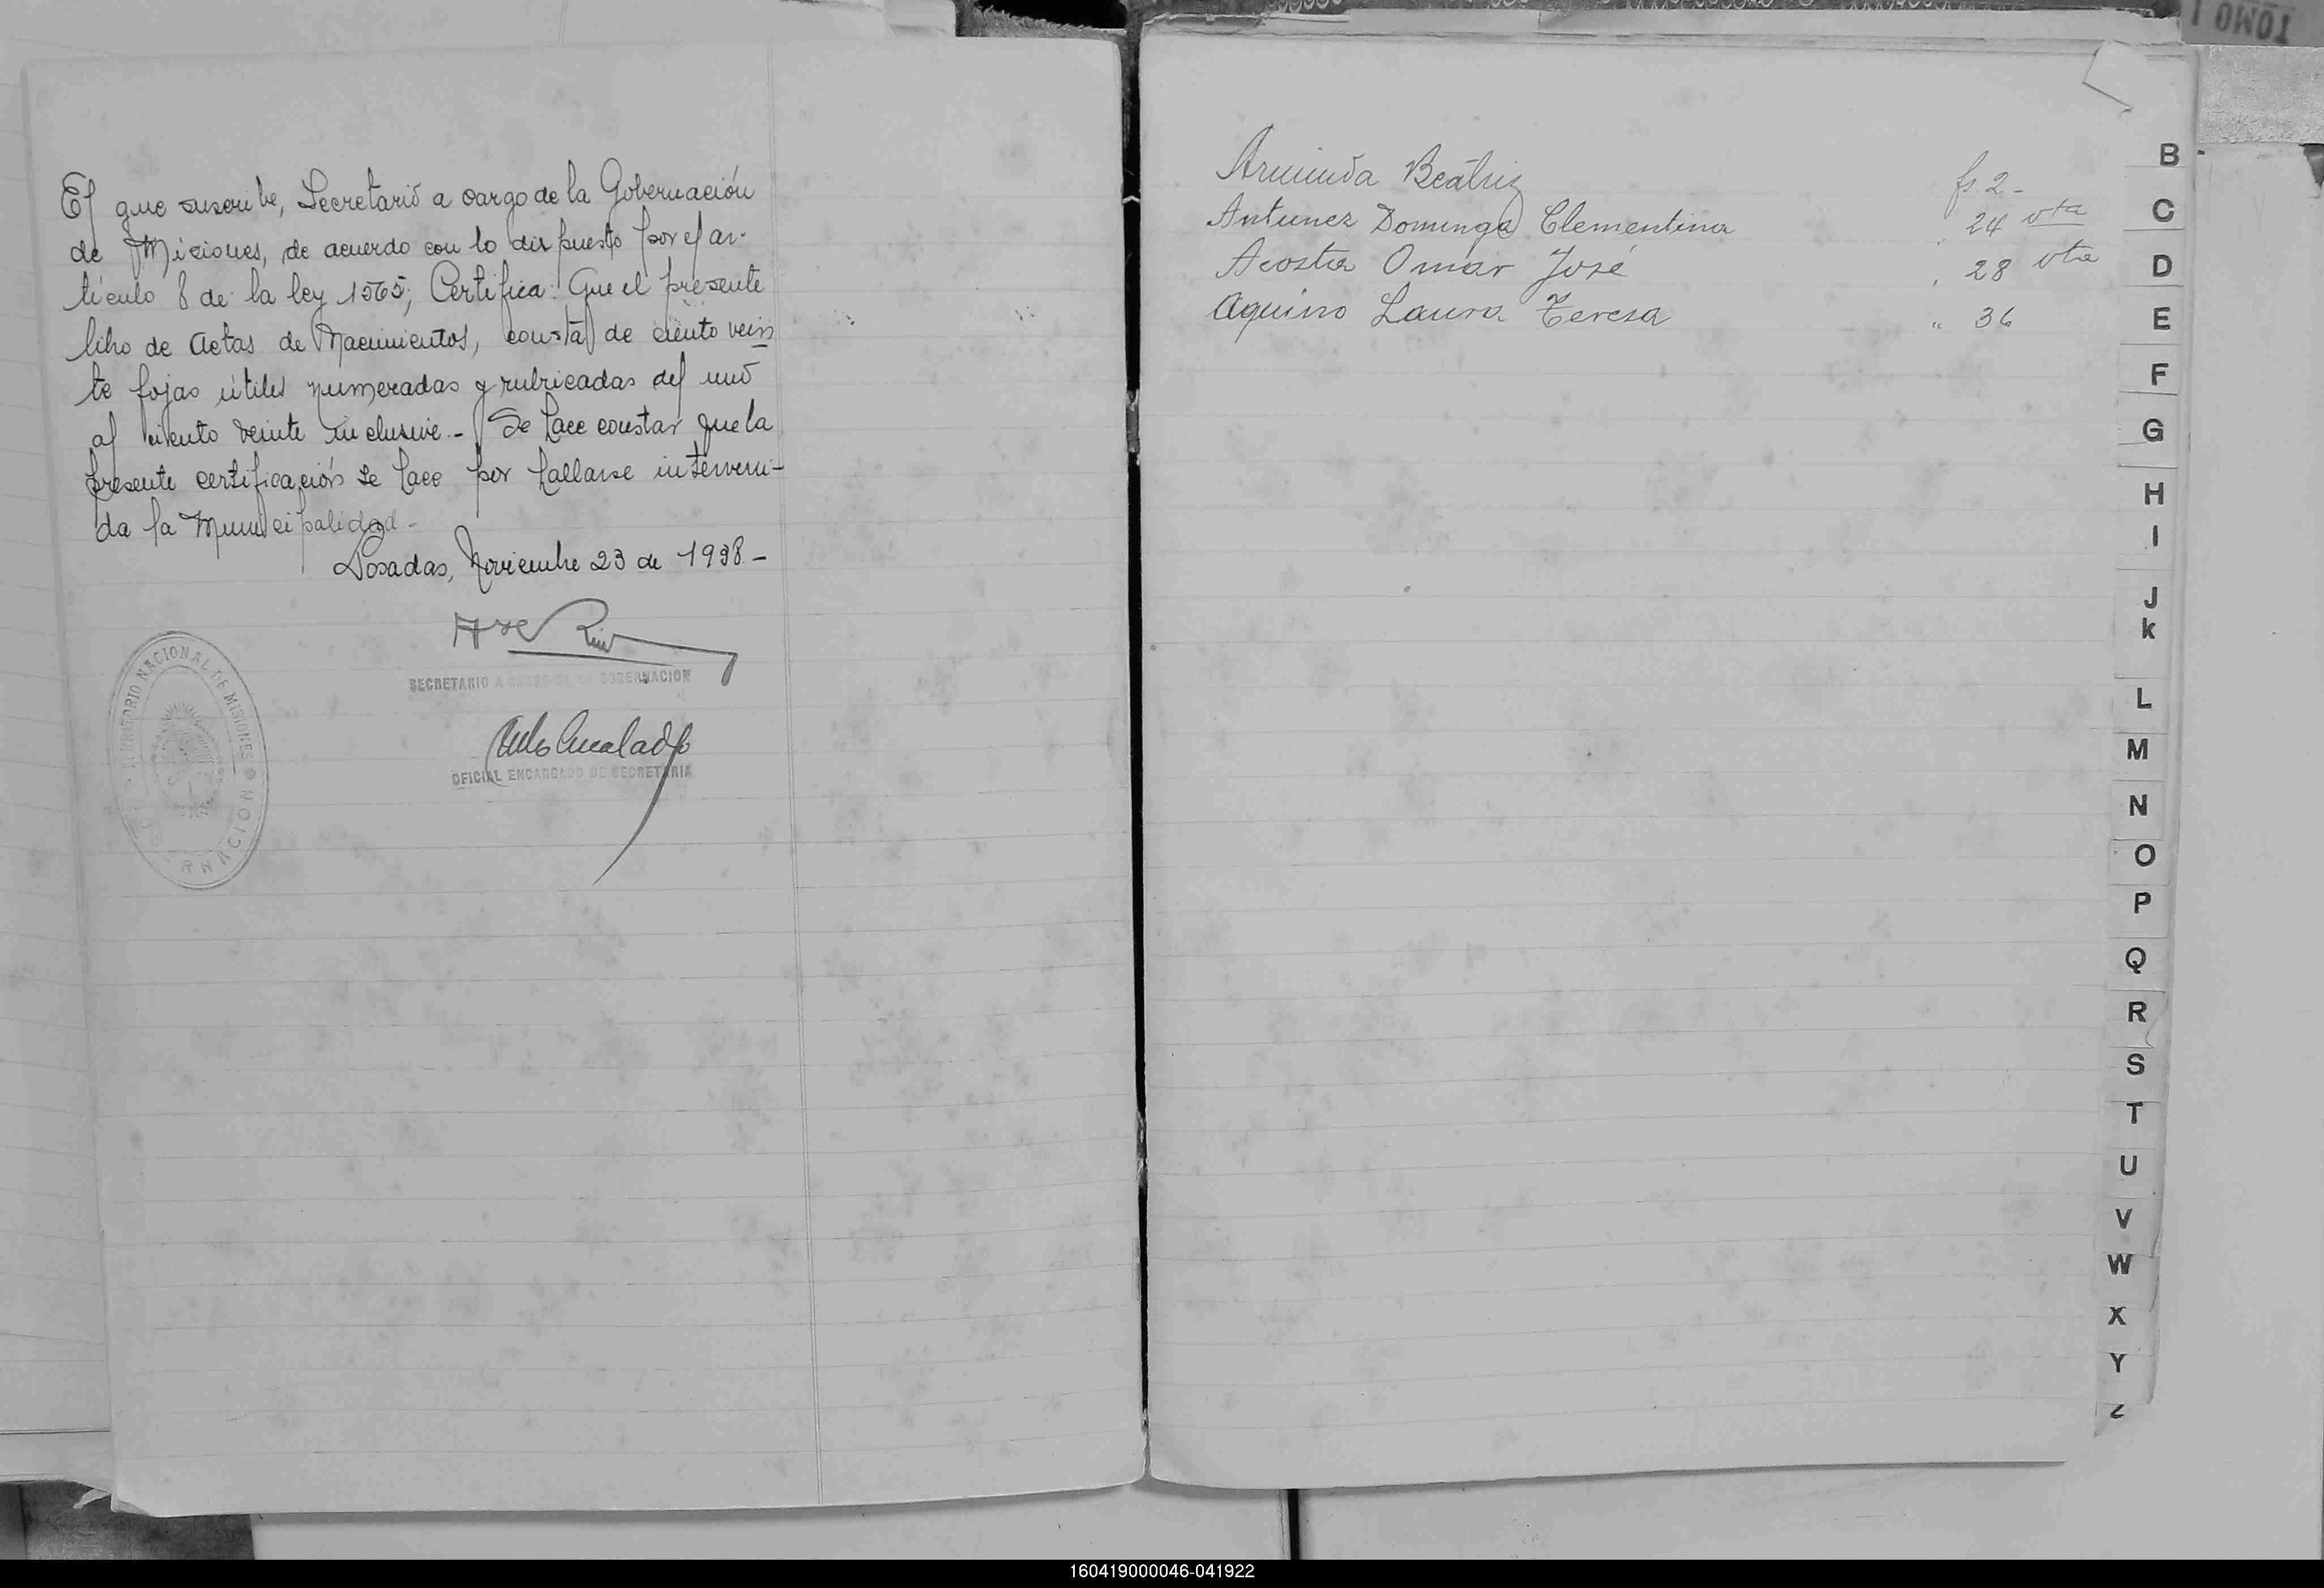 El que suscribe, Secretario a cargo de la Gobernación
de Misiones, de acuerdo con lo dispuesto por el ar-
tículo 8 de la ley 1565; Certifica: Que el presente
libro de Actas de Nacimientos, consta de ciento vein
te fojas útiles numeradas y rubricadas del uno
al ciento veinte inclusive.- Se hace constar que la
presente certificación se hace por hallarse interveni-
da la Municipalidad.-
Posadas, Noviembre 23 de 1938.-
SECRETARIO A CARGO DE LA GOBERNACION
OFICIAL ENCARGADO DE SECRETARIA
TERRITORIO NACIONAL DE MISIONES
GOBERNACION
TOMO I
Arminda Beatriz fs. 2-
Antunez Dominga Clementina " 24 vta
Acosta Omar José " 28 vta
Aquino Laura Teresa " 36
B
C
D
E
F
G
H
I
J
k
L
M
N
O
P
Q
R
S
T
U
V
W
X
Y
Z
160419000046-041922